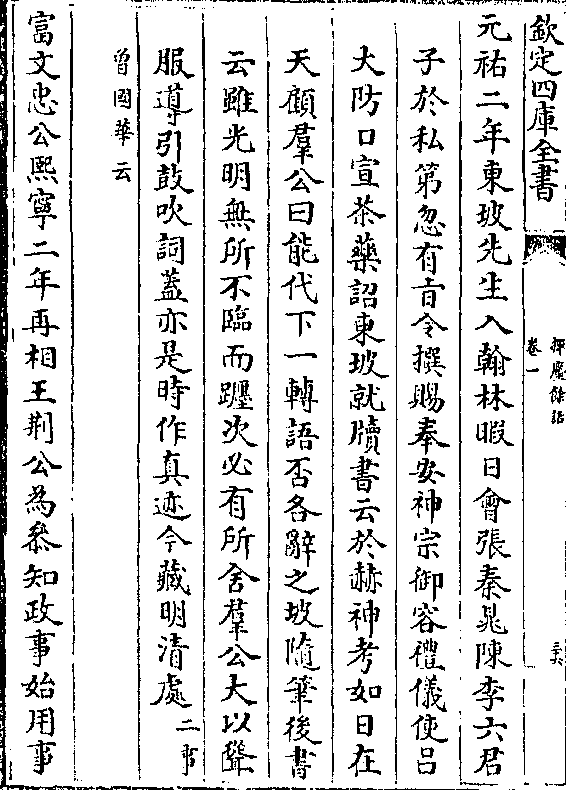 欽定四庫全書
揮麈餘話
卷一
元祐二年東坡先生入翰林暇日會張秦晁陳李六君
子於私第忽有㫖令撰賜奉安神宗御容禮儀使呂
大防口宣茶藥詔東坡就牘書云於赫神考如日在
天顧羣公曰能代下一轉語否各辭之坡隨筆後書
云雖光明無所不臨而躔次必有所舍羣公大以聳
服導引鼓吹詞蓋亦是時作真迹今藏明清處二事
曾國華云
富文忠公熙寧二年再相王荆公為叅知政事始用事